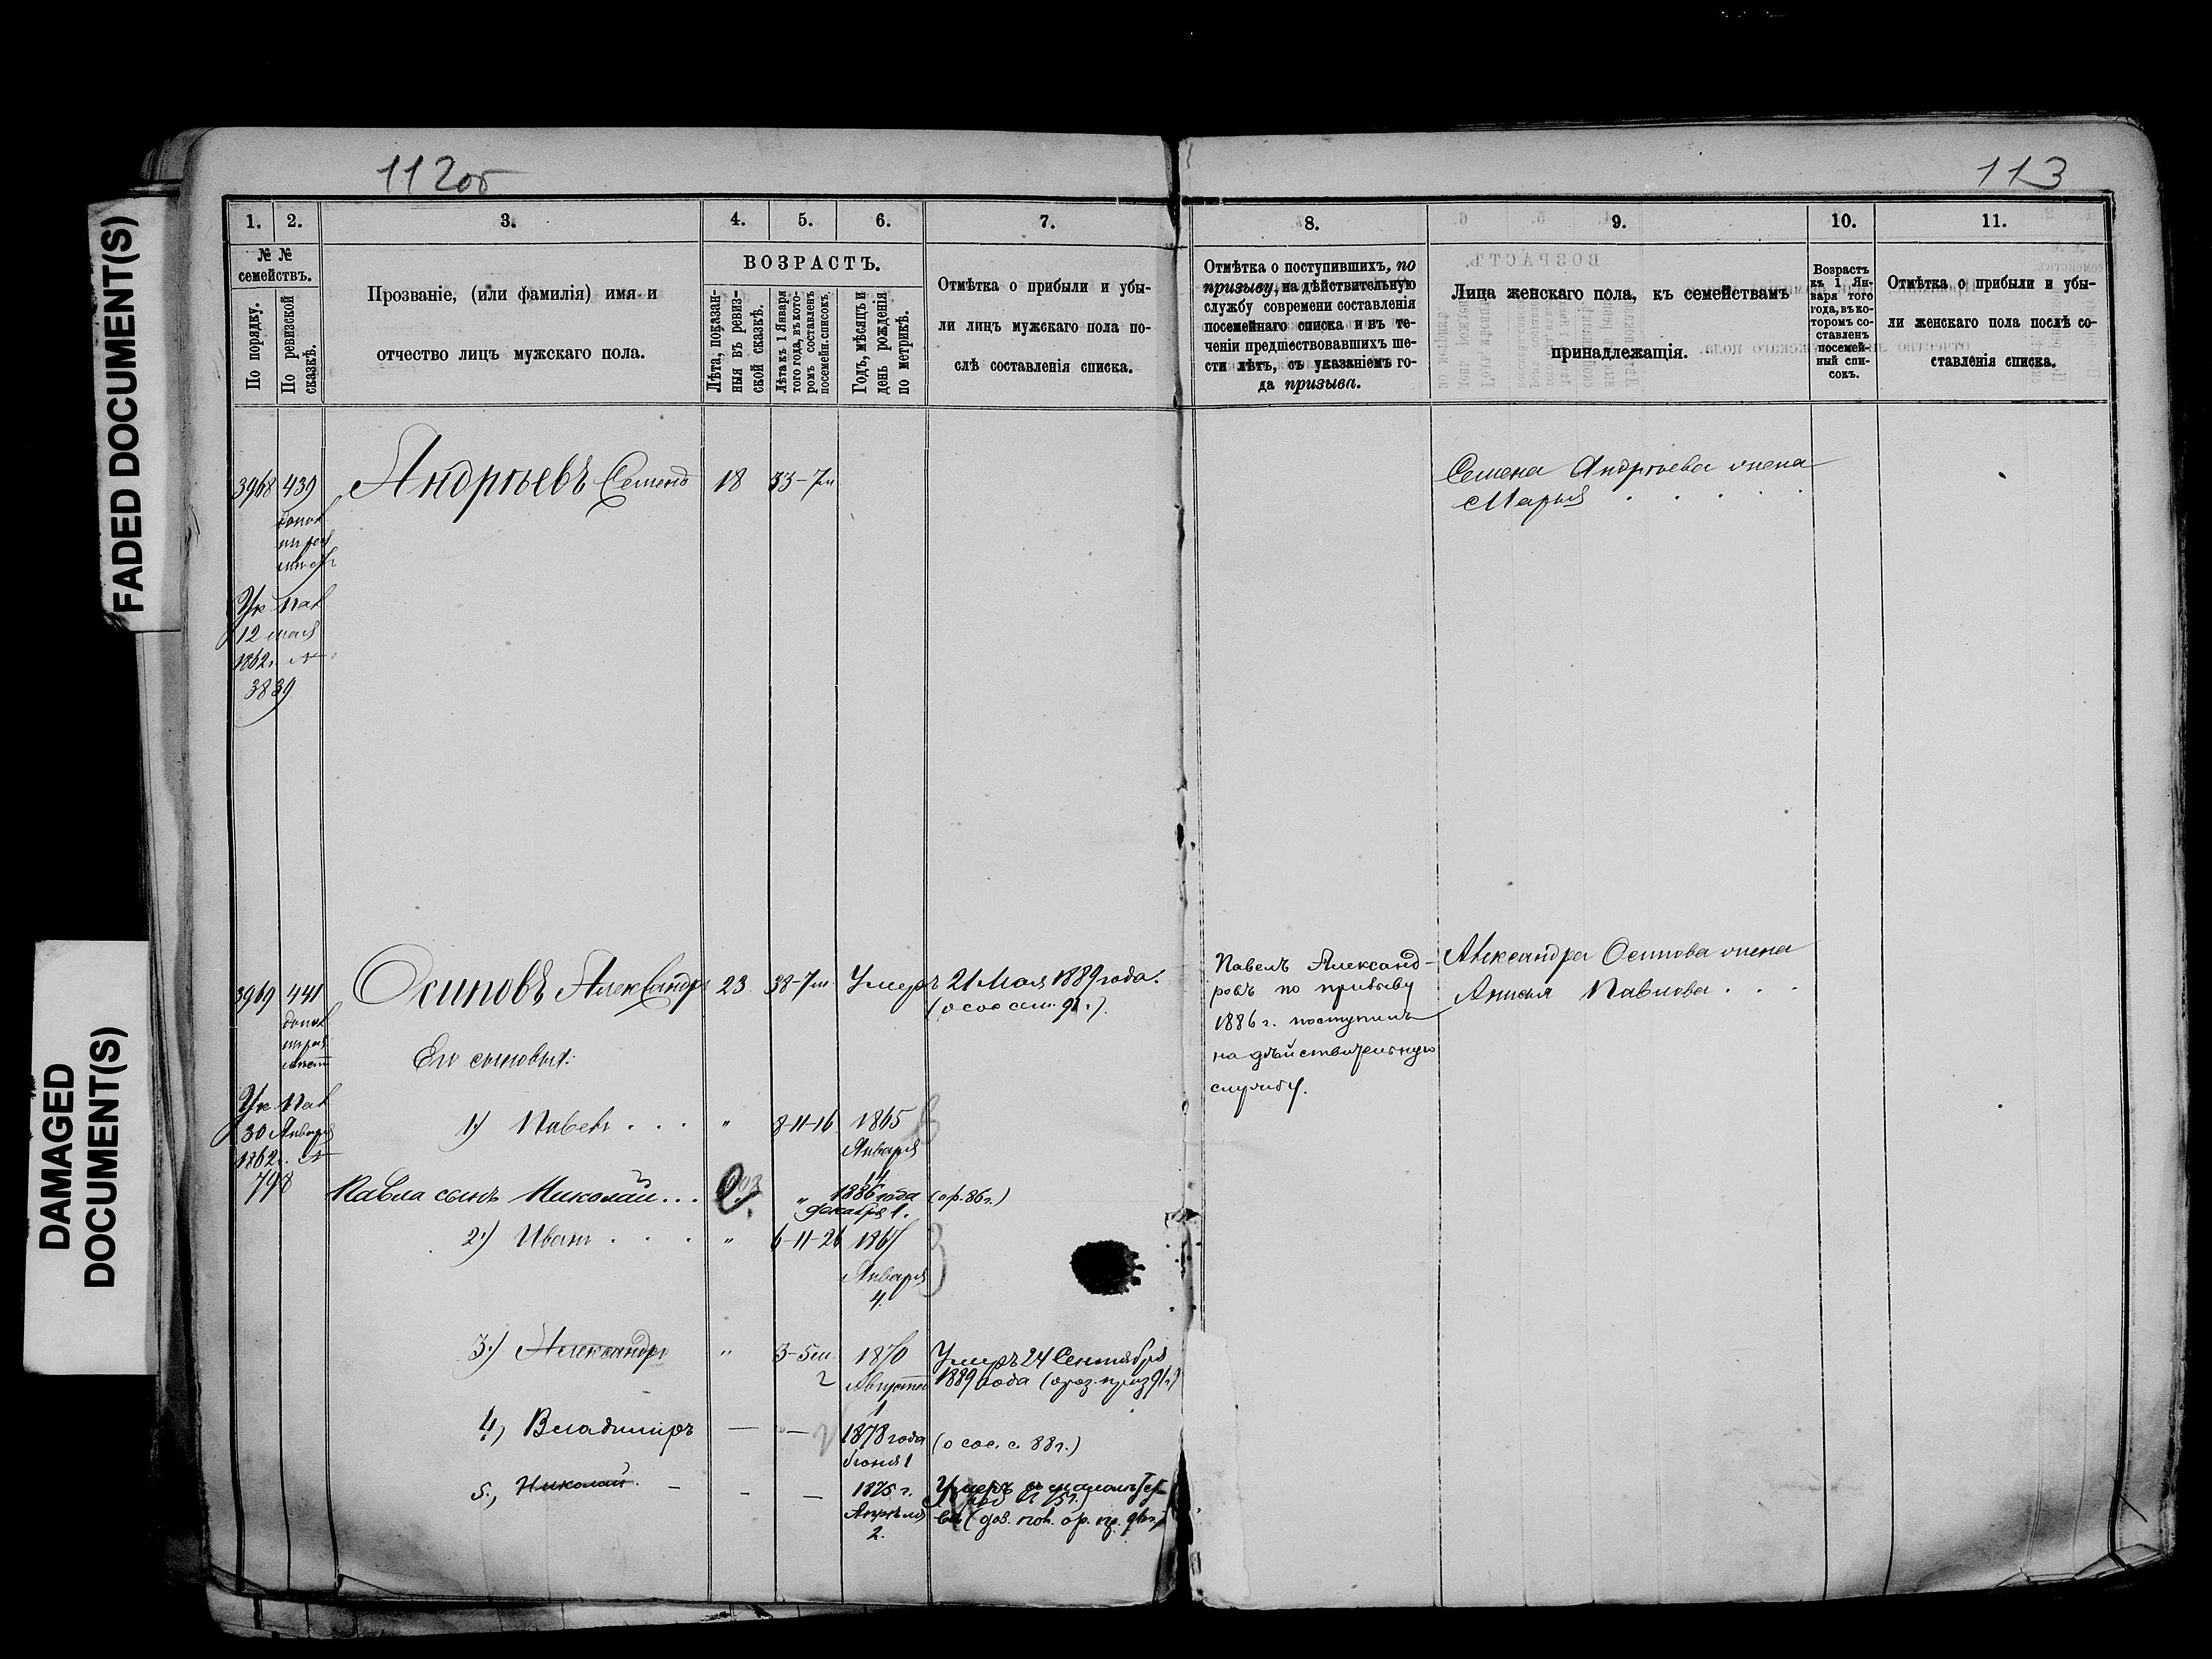 FADED DOCUMENT(S)
DAMAGED
DOCUMENT(S)
112об
113
1.
2.
3.
4.
5.
6.
7.
8.
9.
10.
11.
№ №
семействъ.
По порядку.
По ревизской
сказкѣ.
Прозваніе, (или фамилія) имя и
отчество лицъ мужскаго пола.
ВОЗРАСТЪ.
Лѣта, показан-
ныя въ ревиз-
ской сказкѣ.
Лѣта къ 1 Января
того года, въ кото-
ромъ составленъ
посемейн. списокъ.
Годъ, мѣсяцъ и
день рожденія
по метрикѣ.
Отмѣтка о прибыли и убы-
ли лицъ мужскаго пола по-
слѣ составленія списка.
Отмѣтка о поступившихъ, по
призыву, на дѣйствительную
службу современи составленія
посемейнаго списка и въ те-
ченіи предшествовавшихъ ше-
сти лѣтъ, съ указаніемъ го-
да призыва.
Лица женскаго пола, къ семействамъ
принадлежащія.
Возрастъ
къ 1 Ян-
варя того
года, въ ко-
торомъ со-
ставленъ
посемей-
ный спи-
сокъ.
Отмѣтка о прибыли и убы-
ли женскаго пола послѣ со-
ставленія списка.
3968 439 Андреевъ Семенъ 18 33-7м
Семена Андреева жена
Марья
Ук Пал
12 мая
1862г. №
3839
3969 441 Осиповъ Александръ 23 38-7м Умеръ 21 Мая 1889 года.
Его сыновья:
Ук Пал
30 Января
1862г. №
798
1) Павелъ . . . " 8-11-16 1865
Января
14
Павла сынъ Николай... " 1886 года (ор. 86г.)
декабря 1.
2.) Иванъ . . . " 6-11-26 1867
Января
4.
3.) Александръ " 3-5м 1870 Умеръ 24 Сентября
Августа 1889 года
1
4,) Владиміръ — — 1878 года (о сос. с. 88г.)
Іюня 1
5., Николай - - — 1875 г. Умеръ
Апрѣля
2.
Павелъ Александ-
ровъ по призыву
1886 г. поступилъ
на дѣйствительную
службу.
Александра Осипова жена
Анисья Павлова . . .